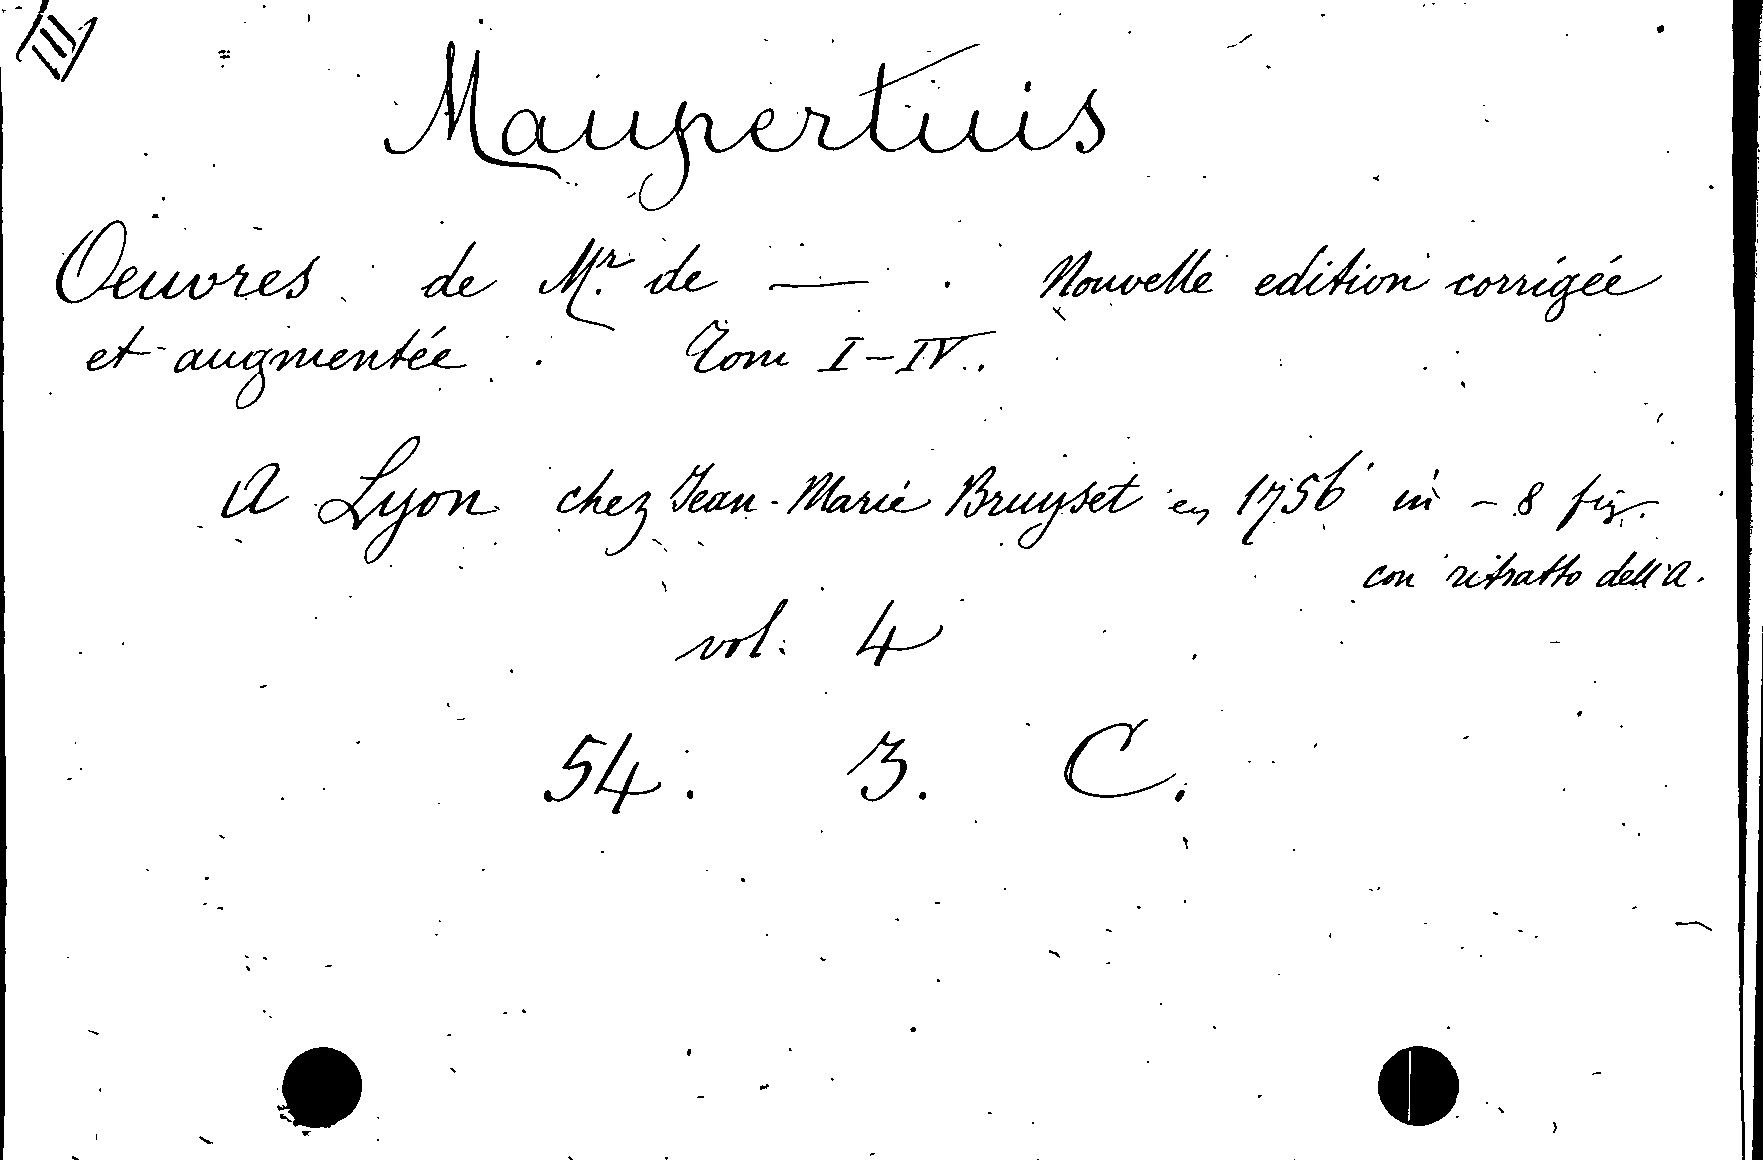 Maupertuis
Oeuvres de Mr. de — . Nouvelle edition corrigée
et augmentée . Tom I-IV.
A Lyon chez Jean-Marie Bruyset en 1756 in-8 fig.
con ritratto dell'A.
vol. 4
54. 3. C.